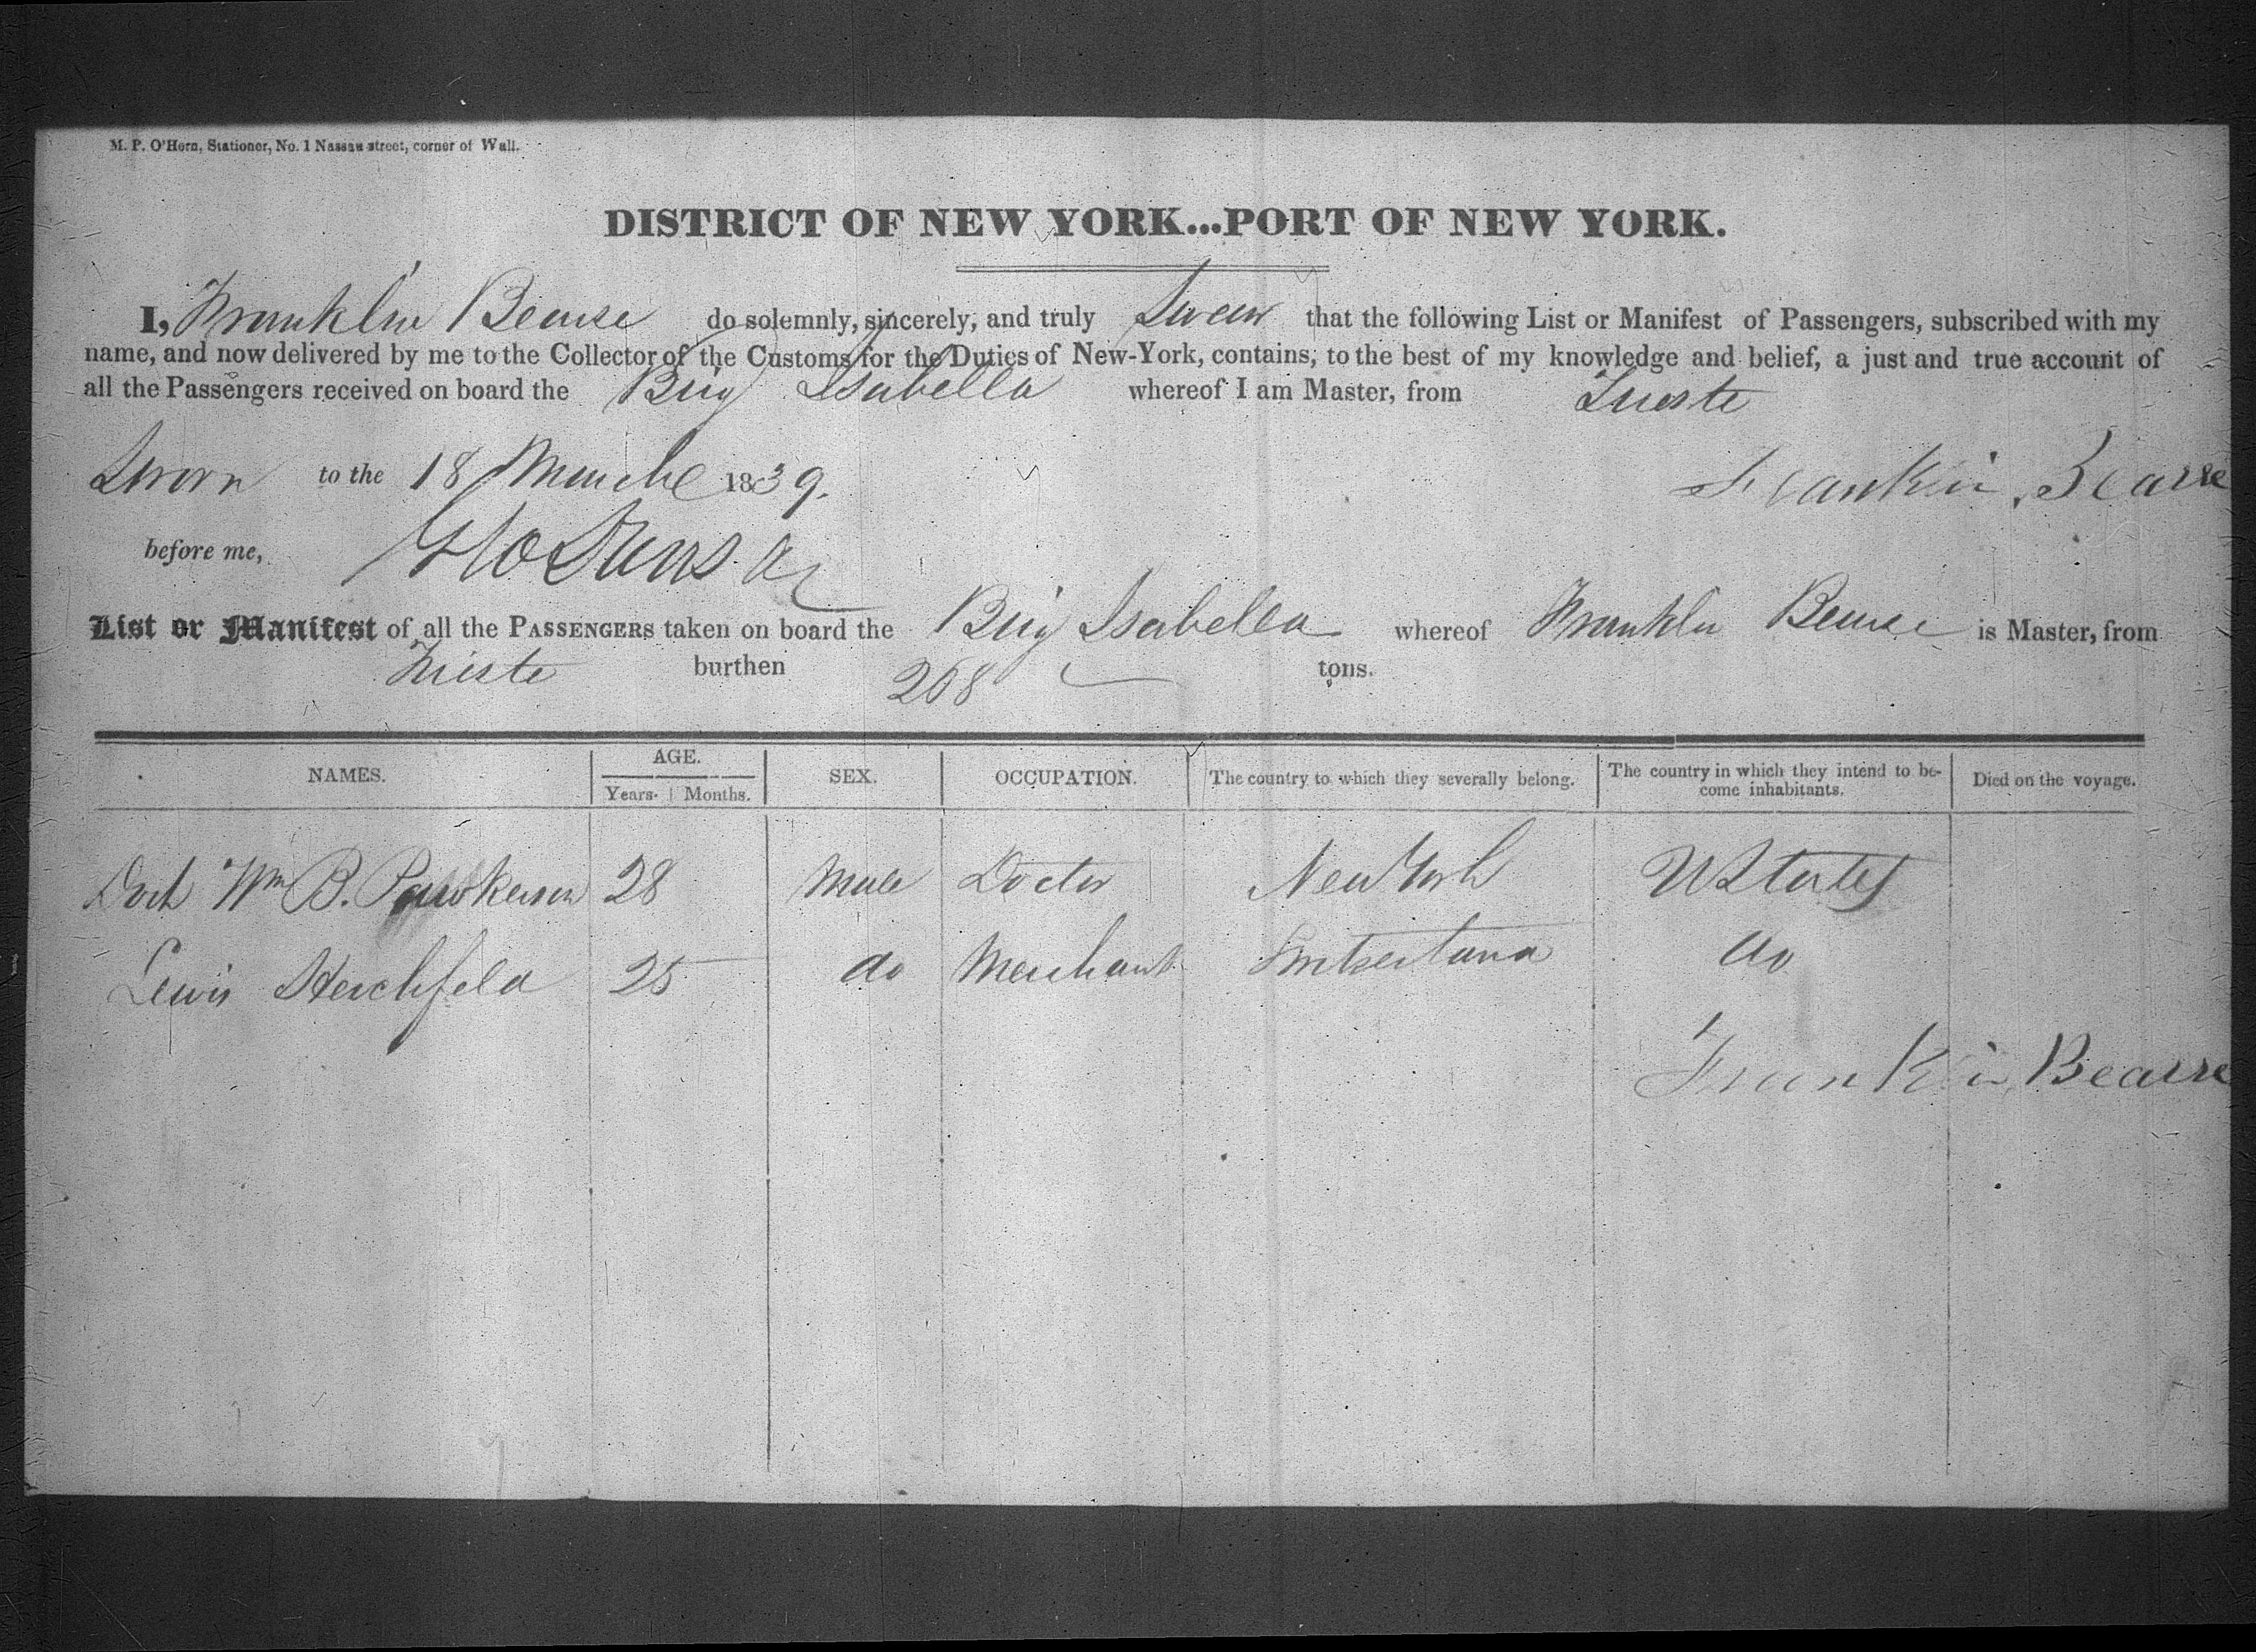 M. P. O'Hern, Stationer, No. 1 Nassau street, corner of Wall.
DISTRICT OF NEW YORK...PORT OF NEW YORK.
I, Franklin Bearse do solemnly, sincerely, and truly Swear that the following List or Manifest of Passengers, subscribed with my
name, and now delivered by me to the Collector of the Customs for the Duties of New-York, contains, to the best of my knowledge and belief, a just and true account of
all the Passengers received on board the Brig Isabella whereof I am Master, from Trieste
Sworn to the 18 March 1839. Franklin Bearse
before me,
List or Manifest of all the PASSENGERS taken on board the Brig Isabella whereof Franklin Bearse is Master, from
Trieste burthen 268 tons.
NAMES. AGE. SEX. OCCUPATION. The country to which they severally belong. The country in which they intend to be- Died on the voyage.
Years. Months. come inhabitants.
Wm B. 28 Male Doctor New York U States
Lewis Herchfeld 25 do Merchant Switzerland do
Franklin Bearse